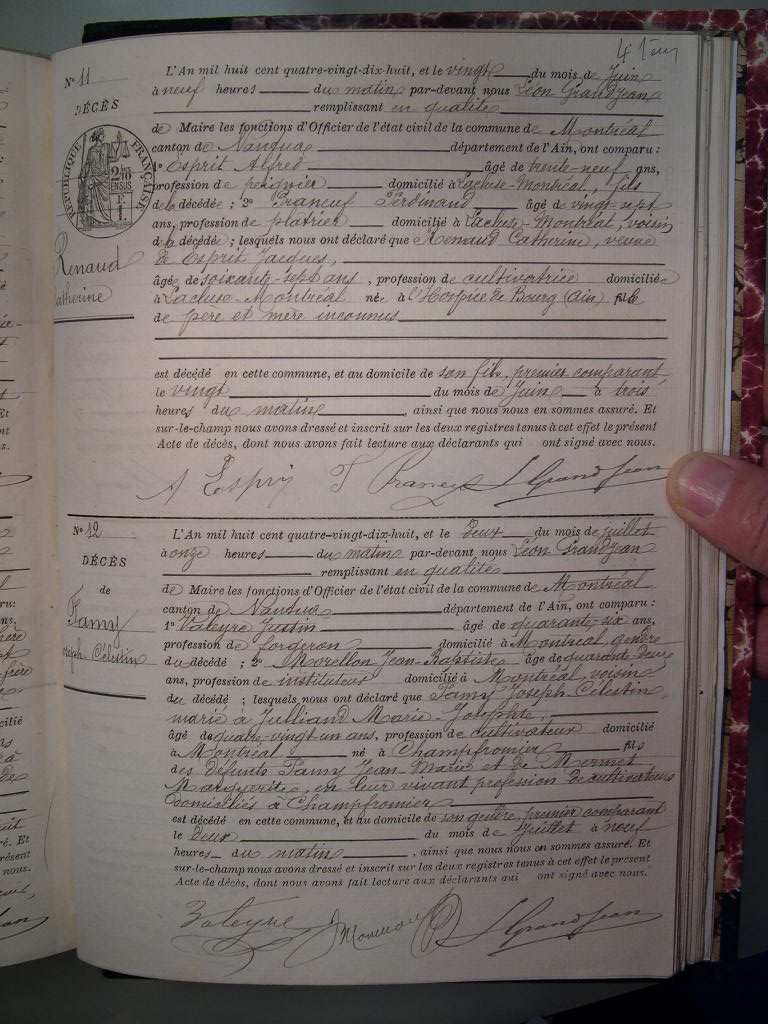 4 1em
N° 11
DÉCÈS
RÉPUBLIQUE FRANÇAISE
Renaud
Catherine
L'An mil huit cent quatre-vingt-dix-huit, et le vingt du mois de Juin
à neuf heures du matin par-devant nous Léon Grandjean
remplissant en qualité
de Maire les fonctions d'Officier de l'état civil de la commune de Montréal
canton de Nantua département de l'Ain, ont comparu :
1° Esprit Alfred âgé de trente-neuf ans,
profession de peignier domicilié à Lacluse-Montréal, fils
de la décédée ; 2° Praneuf Ferdinand âgé de vingt-sept
ans, profession de platrier domicilié à Lacluse-Montréal, voisin
de la décédée ; lesquels nous ont déclaré que Renaud Catherine, veuve
de Esprit Jacques,
âgé de soixante-sept ans, profession de cultivatrice domicilié
à Lacluse-Montréal né à l'Hospice de Bourg (Ain) fille
de père et mère inconnus
est décédé en cette commune, et au domicile de son fils, premier comparant
le vingt du mois de Juin à trois
heures du matin, ainsi que nous nous en sommes assuré. Et
sur-le-champ nous avons dressé et inscrit sur les deux registres tenus à cet effet le présent
Acte de décès, dont nous avons fait lecture aux déclarants qui ont signé avec nous.
A Esprit F L Grandjean
N° 12
DÉCÈS
de
Famy
Joseph Célestin
L'An mil huit cent quatre-vingt-dix-huit, et le Deux du mois de Juillet
à onze heures du matin par-devant nous Léon Grandjean
remplissant en qualité
de Maire les fonctions d'Officier de l'état civil de la commune de Montréal
canton de Nantua département de l'Ain, ont comparu :
1° Valeyre Justin âgé de quarante six ans,
profession de forgeron domicilié à Montréal gendre
du décédé ; 2° Morellon Jean-Baptiste âgé de quarante deux
ans, profession de instituteur domicilié à Montréal, voisin
du décédé ; lesquels nous ont déclaré que Famy Joseph Célestin,
marié à Julliand Marie-Josephte,
âgé de quatre-vingt un ans, profession de cultivateur domicilié
à Montréal né à Champfromier fils
des défunts Famy Jean-Marie et de Mermet
Marguerite, en leur vivant profession de cultivateurs
domiciliés à Champfromier
est décédé en cette commune, et au domicile de son gendre, premier comparant
le deux du mois de Juillet à neuf
heures du matin, ainsi que nous nous en sommes assuré. Et
sur-le-champ nous avons dressé et inscrit sur les deux registres tenus à cet effet le présent
Acte de décès, dont nous avons fait lecture aux déclarants qui ont signé avec nous.
Valeyre L Grandjean